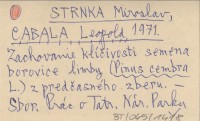 STRNKA Miroslav,
CABALA Leopold, 1971.
Zachovanie klíčivosti semena
borovice limby (Pinus cembra
L.) z predčasného zberu. -
Sbor. Prác o Tatr. Nár. Parku